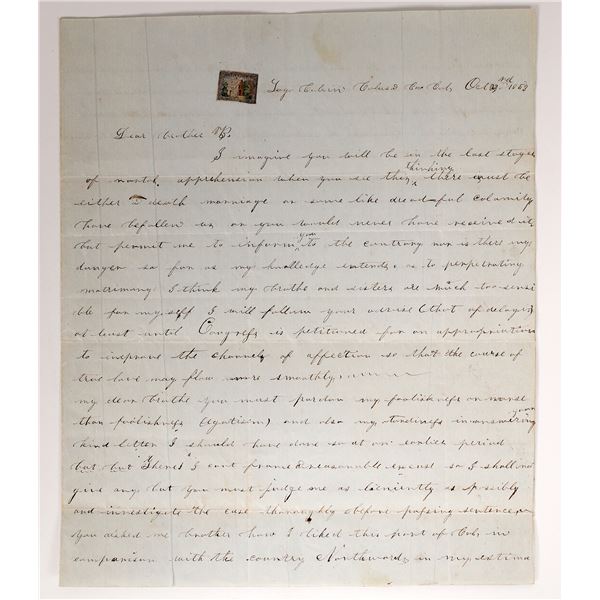 Colusa Co Cal, Oct 23rd 186
Dear Brother
I imagine you will be in the last stages
of mortal apprehension when you see this, thinking there must be
either a death marriage or some like dreadful calamity
have befallen us or you would never have received it
but permit me to inform you to the contrary nor is there any
danger so far as my knowledge extends, as to perpetrating
matrimony I think my brothers and sisters are much too sensi
ble for my self I will follow your advise (that of delaying
at least until Congress is petitioned for an appropriation
to improve the channels of affection so that the course of
true love may flow more smoothly
my dear brother you must pardon my foolishness or worse
than foolishness (egotism) and also my tardiness in answering your
kind letter I should have done so at an earlier period
but but "Thenes" I cant frame a reasonable excuse so I shall not
give any but you must judge me as leniently as possibly
and investigate the case thoroughly before passing sentence
You asked me brother how I liked this part of Cal, in
comparison with the country Northward, in my estima